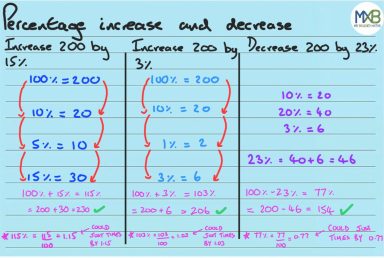 Percentage increase and decrease
MXB
Increase 200 by 15%
100% = 200
10% = 20
5% = 10
15% = 30
100% + 15% = 115%
= 200 + 30 = 230 ✓
* 115% = 115/100 = 1.15
COULD JUST TIMES BY 1.15
Increase 200 by 3%
100% = 200
10% = 20
1% = 2
3% = 6
100% + 3% = 103%
= 200 + 6 = 206 ✓
* 103% = 103/100 = 1.03
COULD JUST TIMES BY 1.03
Decrease 200 by 23%
10% = 20
20% = 40
3% = 6
23% = 40 + 6 = 46
100% - 23% = 77%
= 200 - 46 = 154 ✓
* 77% = 77/100 = 0.77
COULD JUST TIMES BY 0.77